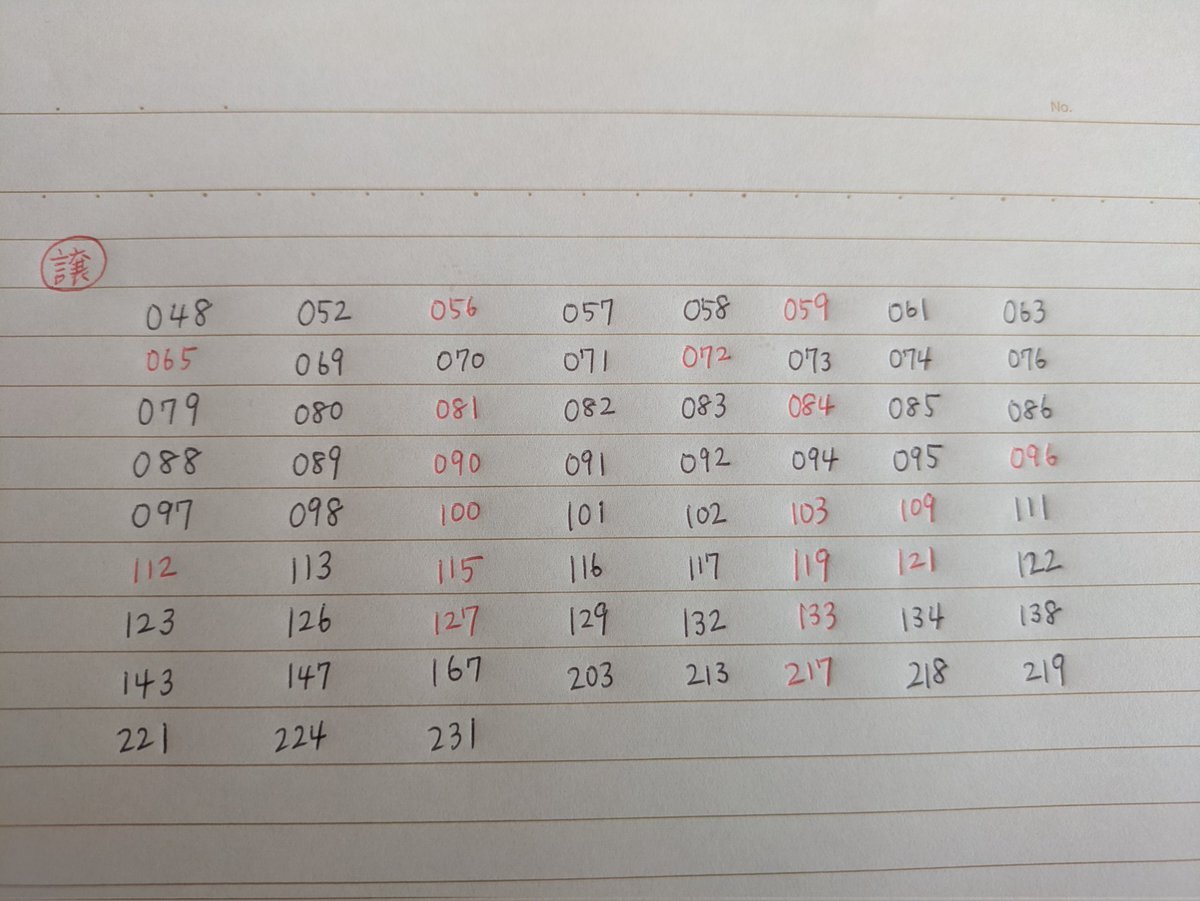 No.
譲
048 052 056 057 058 059 061 063
065 069 070 071 072 073 074 076
079 080 081 082 083 084 085 086
088 089 090 091 092 094 095 096
097 098 100 101 102 103 109 111
112 113 115 116 117 119 121 122
123 126 127 129 132 133 134 138
143 147 167 203 213 217 218 219
221 224 231